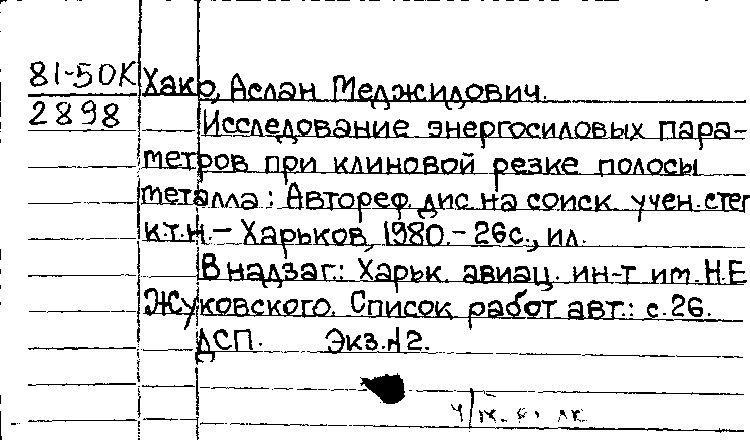 81-50К Хако, Аслан Меджидович.
2898 Исследование энергосиловых пара-
метров при клиновой резке полосы
металла: Автореф. дис. на соиск. учен. степ
к.т.н. - Харьков, 1980. - 26с., ил.
В надзаг.: Харьк. авиац. ин-т им. Н.Е
Жуковского. Список работ авт.: с.26.
ДСП. Экз.№2.